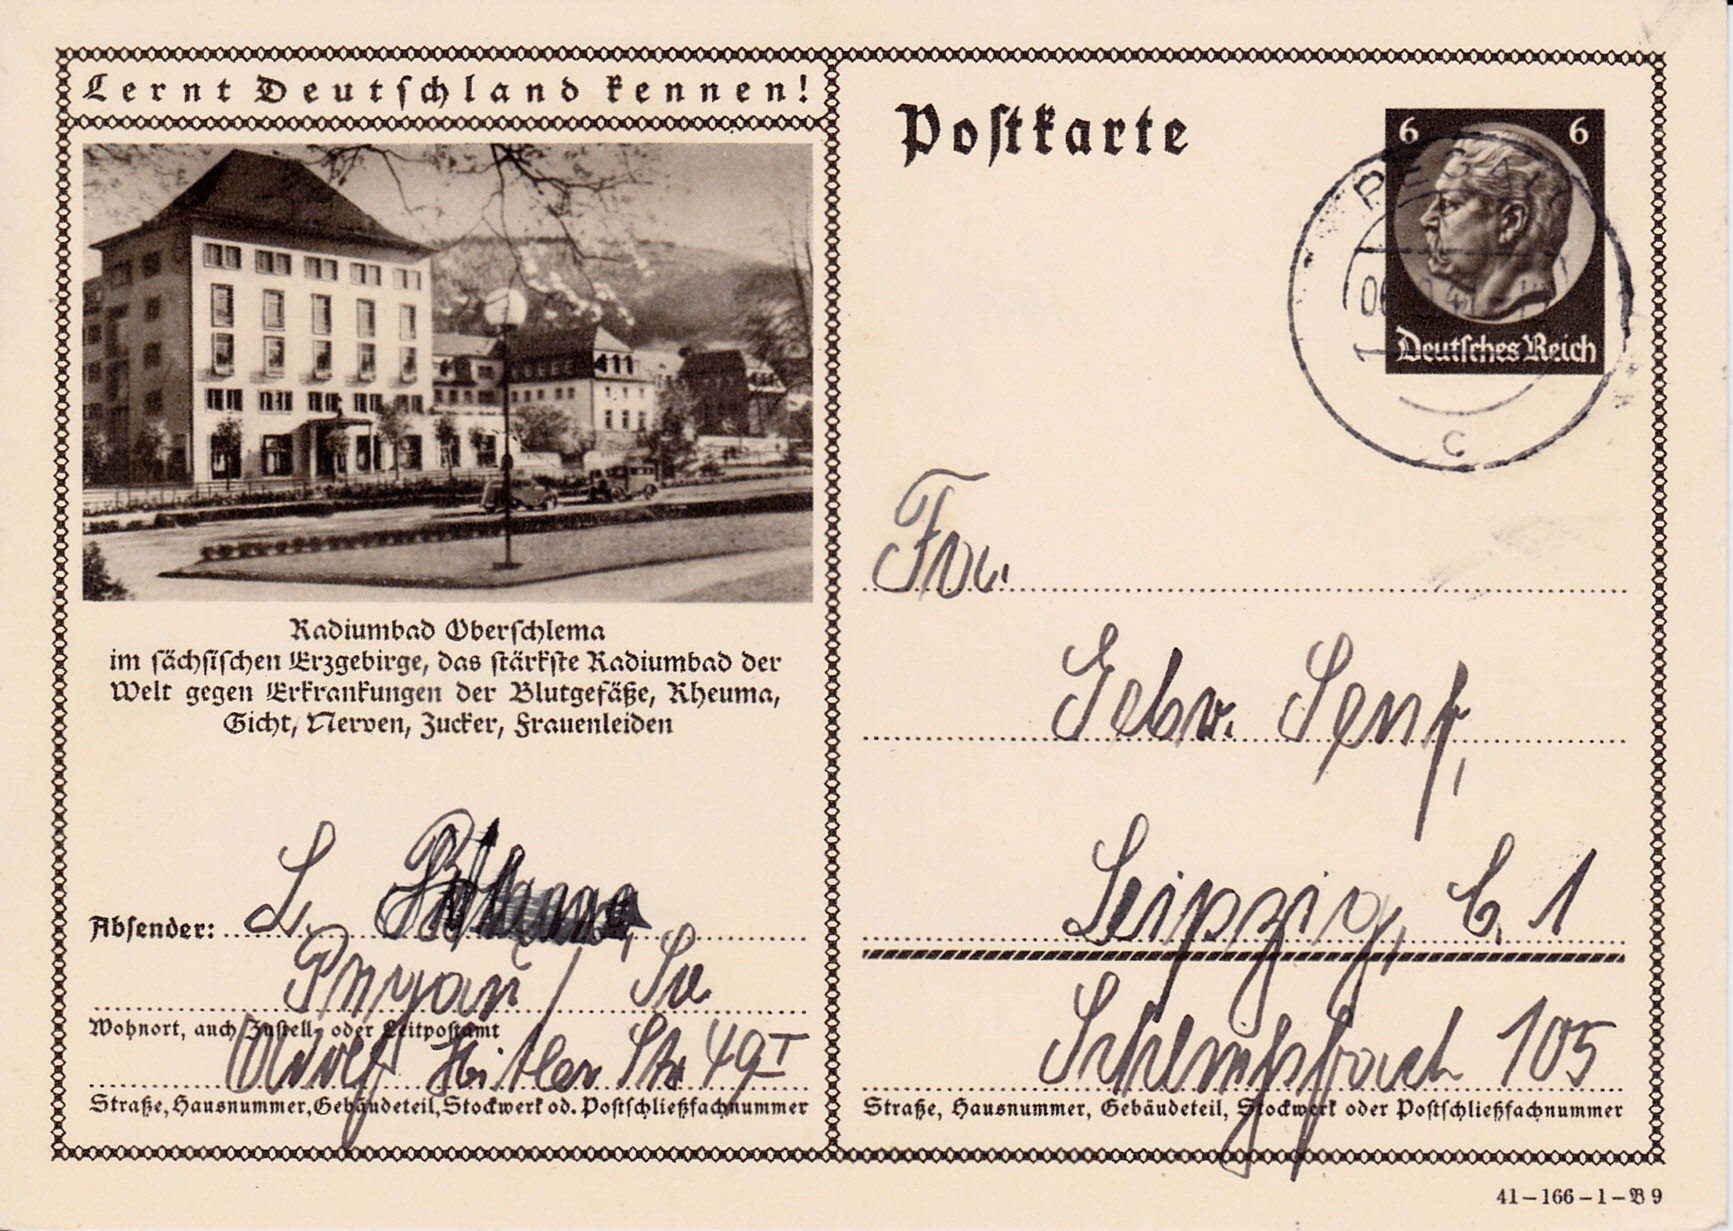 Lernt Deutschland kennen!
Radiumbad Oberschlema
im sächsischen Erzgebirge, das stärkste Radiumbad der
Welt gegen Erkrankungen der Blutgefäße, Rheuma,
Gicht, Nerven, Zucker, Frauenleiden
Absender: L.
Wohnort, auch Zustell- oder Leitpostamt
Adolf Hitler Str 49 I
Straße, Hausnummer, Gebäudeteil, Stockwerk od. Postschließfachnummer
Postkarte
6 6
Deutsches Reich
c
Fa.
Gebr. Senf,
Leipzig, C. 1
105
Straße, Hausnummer, Gebäudeteil, Stockwerk oder Postschließfachnummer
41-166-1-B 9